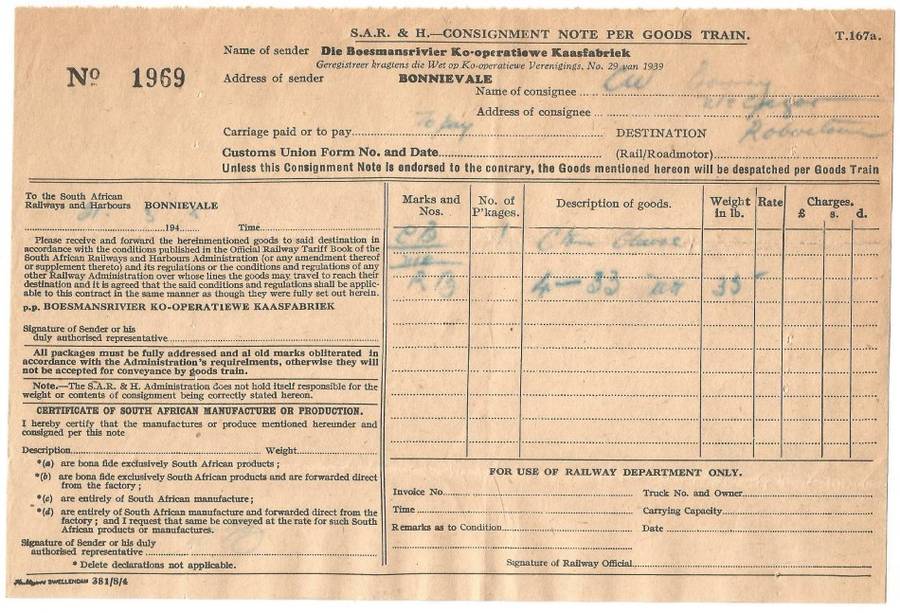 S.A.R. & H.—CONSIGNMENT NOTE PER GOODS TRAIN.
T.167a.
Name of sender Die Boesmansrivier Ko-operatiewe Kaasfabriek
Geregistreer kragtens die Wet op Ko-operatiewe Verenigings, No. 29 van 1939
No 1969
Address of sender BONNIEVALE
Name of consignee
Address of consignee
Carriage paid or to pay To pay DESTINATION
Customs Union Form No. and Date (Rail/Roadmotor)
Unless this Consignment Note is endorsed to the contrary, the Goods mentioned hereon will be despatched per Goods Train
To the South African
Railways and Harbours BONNIEVALE
194 Time
Please receive and forward the hereinmentioned goods to said destination in
accordance with the conditions published in the Official Railway Tariff Book of the
South African Railways and Harbours Administration (or any amendment thereof
or supplement thereto) and its regulations or the conditions and regulations of any
other Railway Administration over whose lines the goods may travel to reach their
destination and it is agreed that the said conditions and regulations shall be applic-
able to this contract in the same manner as though they were fully set out herein.
p.p. BOESMANSRIVIER KO-OPERATIEWE KAASFABRIEK
Signature of Sender or his
duly authorised representative
All packages must be fully addressed and al old marks obliterated in
accordance with the Administration's requirelments, otherwise they will
not be accepted for conveyance by goods train.
Note.—The S.A.R. & H. Administration does not hold itself responsible for the
weight or contents of consignment being correctly stated hereon.
CERTIFICATE OF SOUTH AFRICAN MANUFACTURE OR PRODUCTION.
I hereby certify that the manufactures or produce mentioned hereunder and
consigned per this note
Description Weight
*(a) are bona fide exclusively South African products;
*(b) are bona fide exclusively South African products and are forwarded direct
from the factory;
*(c) are entirely of South African manufacture;
*(d) are entirely of South African manufacture and forwarded direct from the
factory; and I request that same be conveyed at the rate for such South
African products or manufactures.
Signature of Sender or his duly
authorised representative
* Delete declarations not applicable.
SWELLENDAM 381/8/4
Marks and Nos. No. of P'kages. Description of goods. Weight in lb. Rate Charges. £ s. d.
CB 1
RB 4 — 33 35
FOR USE OF RAILWAY DEPARTMENT ONLY.
Invoice No. Truck No. and Owner
Time Carrying Capacity
Remarks as to Condition Date
Signature of Railway Official